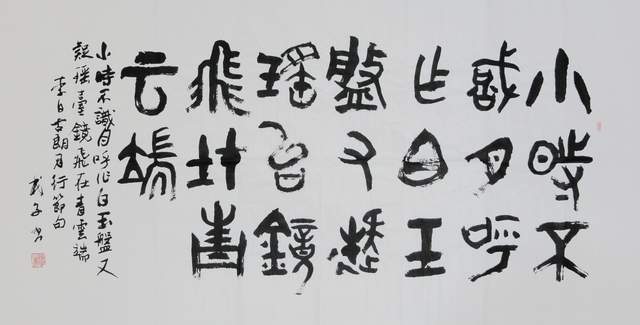 小時不
識月呼
乍白玉
盤又疑
瑶台鏡
飛在青
云端
小時不識月呼作白玉盤又
疑瑶臺鏡飛在青雲端
李白古朗月行節句